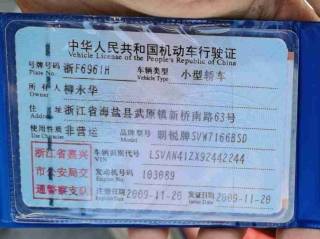 中华人民共和国机动车行驶证
Vehicle License of the People's Republic of China
号牌号码 浙F6961H 车辆类型 小型轿车
Plate No. Vehicle Type
所有人 柳永华
住址 浙江省海盐县武原镇新桥南路63号
使用性质 非营运 品牌型号 明锐牌SVW7166BSD
浙江省嘉兴
市公安局交
通警察支队
车辆识别代号 LSVAN41ZX92442244
VIN
发动机号码 103089
注册日期 2009-11-20 发证日期 2009-11-20